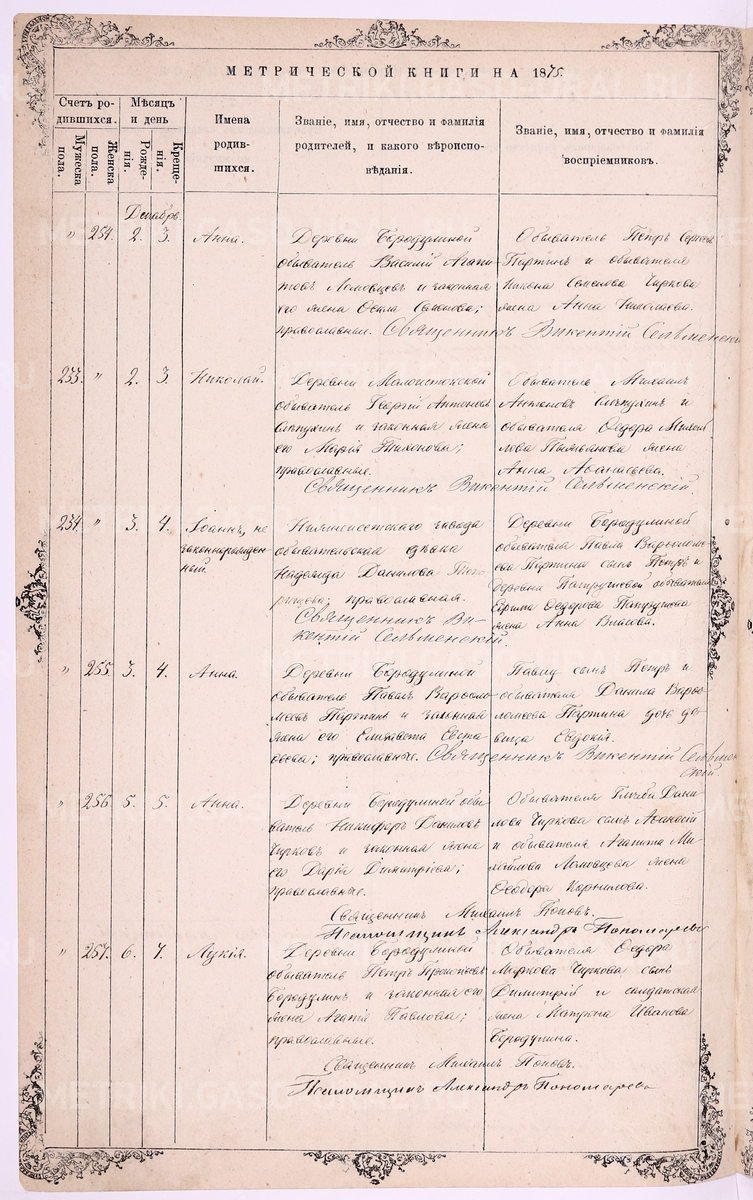 МЕТРИЧЕСКОЙ КНИГИ НА 1875.
Счетъ ро-
дившихся.
Мужеска
пола.
Женска
пола.
Мѣсяцъ
и день
Рожде-
нія.
Креще-
нія.
Имена
родив-
шихся.
Званіе, имя, отчество и фамилія
родителей, и какого вѣроиспо-
вѣданія.
Званіе, имя, отчество и фамилія
воспріемниковъ.
Декабрь.
" 254. 2. 3. Анна.
Деревни Бородулиной
обыватель Василій Агапи-
товъ Ломовцевъ и законная
его жена
православные. Священникъ Викентій Сельменскій
Обыватель Петръ Сергѣевъ
Пиртинъ и обывателя
Чиркова
жена Анна Николаева.
233. " 2. 3. Николай.
Деревни Малоистокской
обыватель Георгій Антоновъ
и законная жена
его Марія Тихонова;
православные.
Священникъ Викентій Сельменскій.
Обыватель Михаилъ
и
обывателя Ѳедора
жена
Анна Аѳанасьева.
234. " 3. 4. Іоаннъ, не
законнорожден-
ный.
Нижнеисетскаго завода
обывательская дѣвка
Надежда Данилова
православная.
Священникъ Ви-
кентій Сельменскій.
Деревни Бородулиной
обывателя Павла Варѳоломе-
ева Пиртина сынъ Петръ и
деревни обывателя
Ѳедорова
жена Анна Власова.
" 255. 3. 4. Анна.
Деревни Бородулиной
обыватель Павелъ Варѳоло-
меевъ Пиртинъ и законная
жена его Елизавета Евста-
православные. Священникъ Викентій Сельмен-
скій.
сынъ Петръ и
обывателя Данила Варѳо-
ломеева Пиртина дочь дѣ-
вица Евдокія.
" 256. 5. 5. Анна.
Деревни Бородулиной обы-
ватель Никифоръ Даниловъ
Чирковъ и законная жена
его Дарія Димитріева;
православные.
Священникъ Михаилъ Поповъ.
Псаломщикъ Александръ Пономаревъ
Обывателя Глѣба Дани-
лова Чиркова сынъ Аѳанасій
и обывателя Агапита Ми-
хайлова Ломовцева жена
Ѳеодора Корнилова.
" 257. 6. 7. Лукія.
Деревни Бородулиной
обыватель Петръ Прокопьевъ
Бородулинъ и законная его
жена Агаѳія Павлова;
православные.
Священникъ Михаилъ Поповъ.
Псаломщикъ Александръ Пономаревъ
Обывателя Ѳедора
Маркова Чиркова сынъ
Димитрій и солдатская
жена Матрена Иванова
Бородулина.